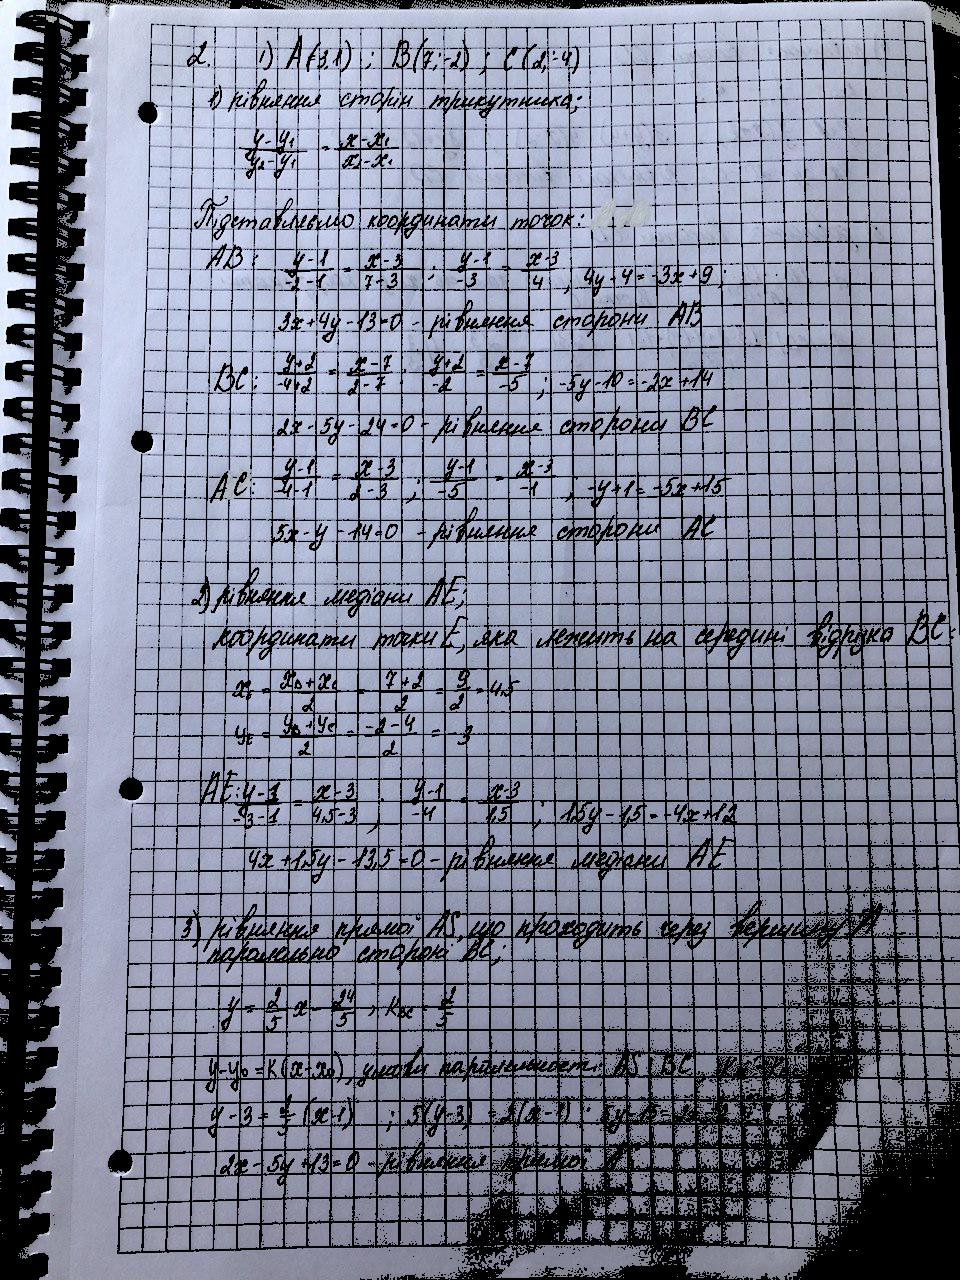 2. 1) A(3,1) ; B(7;-2) ; C(2;-4)
1) рівняння сторін трикутника;
(y-y₁)/(y₂-y₁) = (x-x₁)/(x₂-x₁)
Підставляємо координати точок:
AB: (y-1)/(-2-1) = (x-3)/(7-3) ; (y-1)/(-3) = (x-3)/4 ; 4y-4=-3x+9;
3x+4y-13=0 - рівняння сторони AB
BC: (y+2)/(-4+2) = (x-7)/(2-7) ; (y+2)/(-2) = (x-7)/(-5) ; -5y-10=-2x+14
2x-5y-24=0 - рівняння сторони BC
AC: (y-1)/(-4-1) = (x-3)/(2-3) ; (y-1)/(-5) = (x-3)/(-1) ; -y+1=-5x+15
5x-y-14=0 - рівняння сторони AC
2) рівняння медіани AE;
координати точки E, яка лежить на середині відрізка BC:
xE = (xB+xC)/2 = (7+2)/2 = 9/2 = 4,5
yE = (yB+yC)/2 = (-2-4)/2 = -3
AE: (y-1)/(-3-1) = (x-3)/(4,5-3) ; (y-1)/(-4) = (x-3)/1,5 ; 1,5y-1,5=-4x+12
4x+1,5y-13,5=0 - рівняння медіани AE
3) рівняння прямої AS, що проходить через вершину A
паралельно стороні BC;
y = 2/5 x - 24/5 ; kBC = 2/5
y-y₀=k(x-x₀), умови паралельності AS і BC
y-3 = 2/5 (x-1) ; 5(y-3) = 2(x-1) ;
2x-5y+13=0 - рівняння прямої